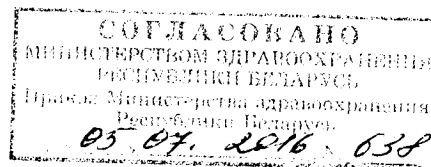 СОГЛАСОВАНО
МИНИСТЕРСТВОМ ЗДРАВООХРАНЕНИЯ
РЕСПУБЛИКИ БЕЛАРУСЬ
Приказ Министерства здравоохранения
Республики Беларусь
05 07. 2016 638